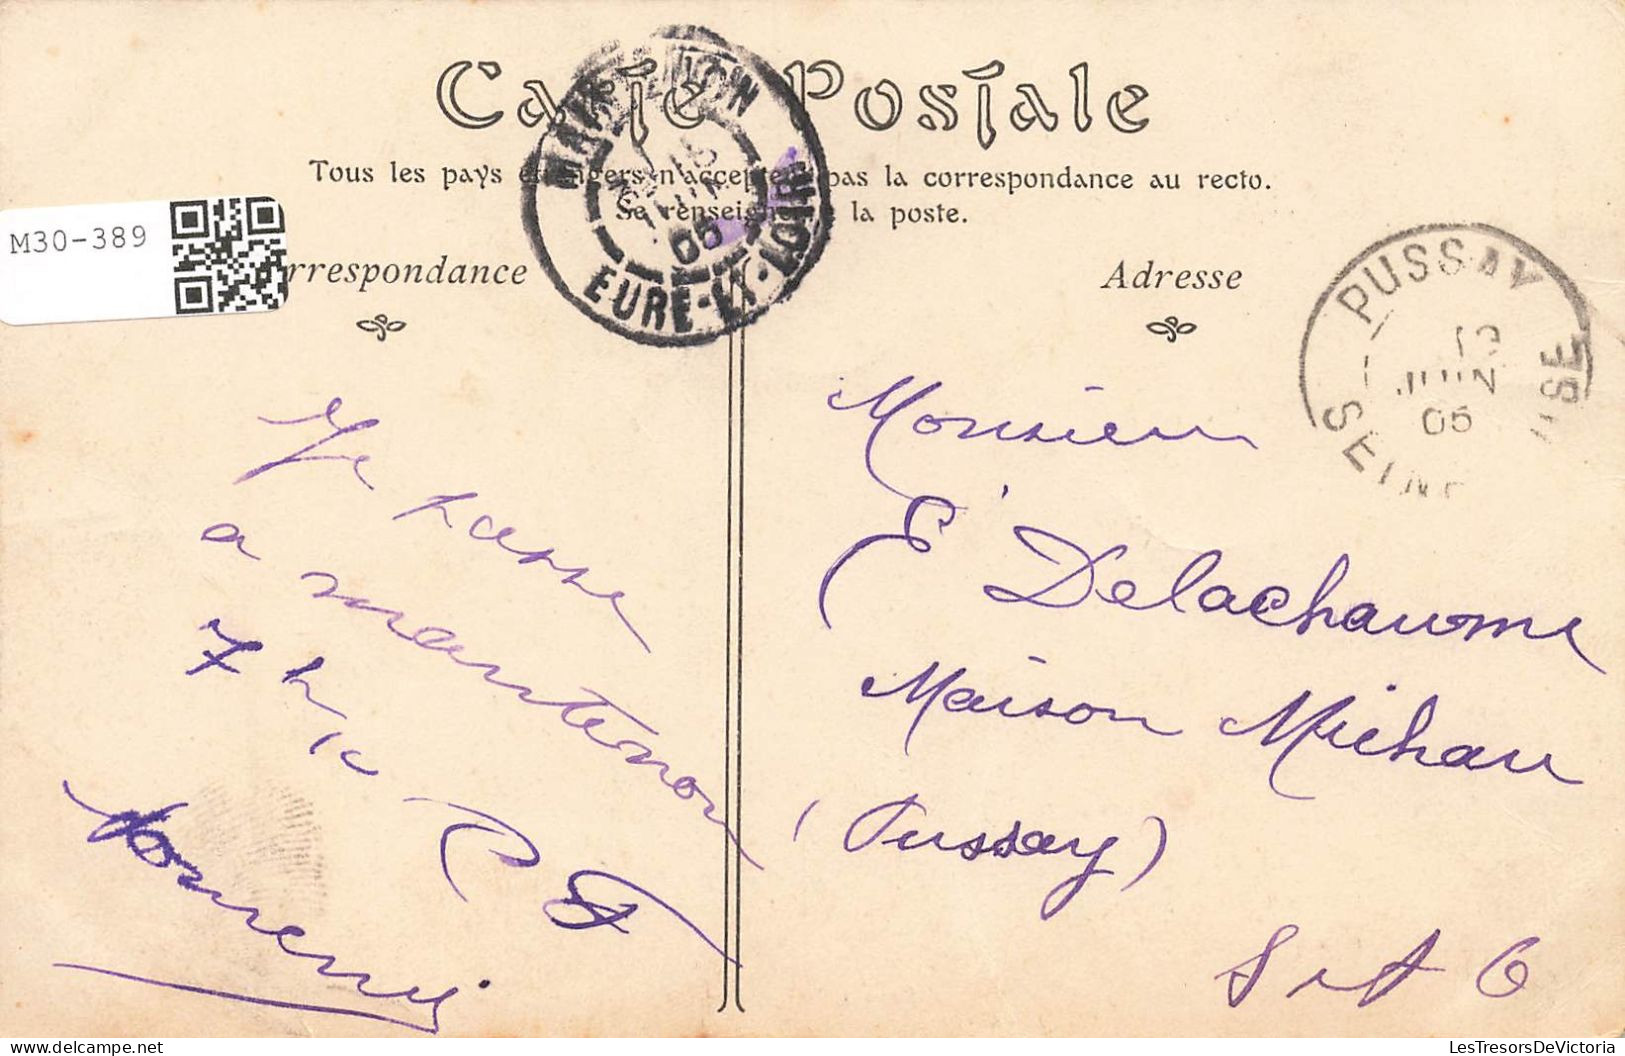 Carte Postale
Tous les pays étrangers n'acceptent pas la correspondance au recto.
Se renseigner à la poste.
M30-389
Correspondance
Adresse
MAINTENON
15
JUIN
05
EURE-ET-LOIR
PUSSAY
15
JUIN
05
SEINE
OISE
Je passe
a maintenon
7 h
Monsieur
E Delachaume
Maison Michau
(Pussay)
S et O
LesTresorsDeVictoria